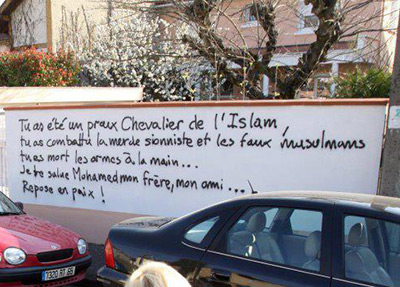 Tu as été un preux Chevalier de l'Islam,
tu as combattu la merde sioniste et les faux musulmans
tu es mort les armes à la main...
Je te salue Mohamed mon frère, mon ami...
Repose en paix !
7320 RT 65